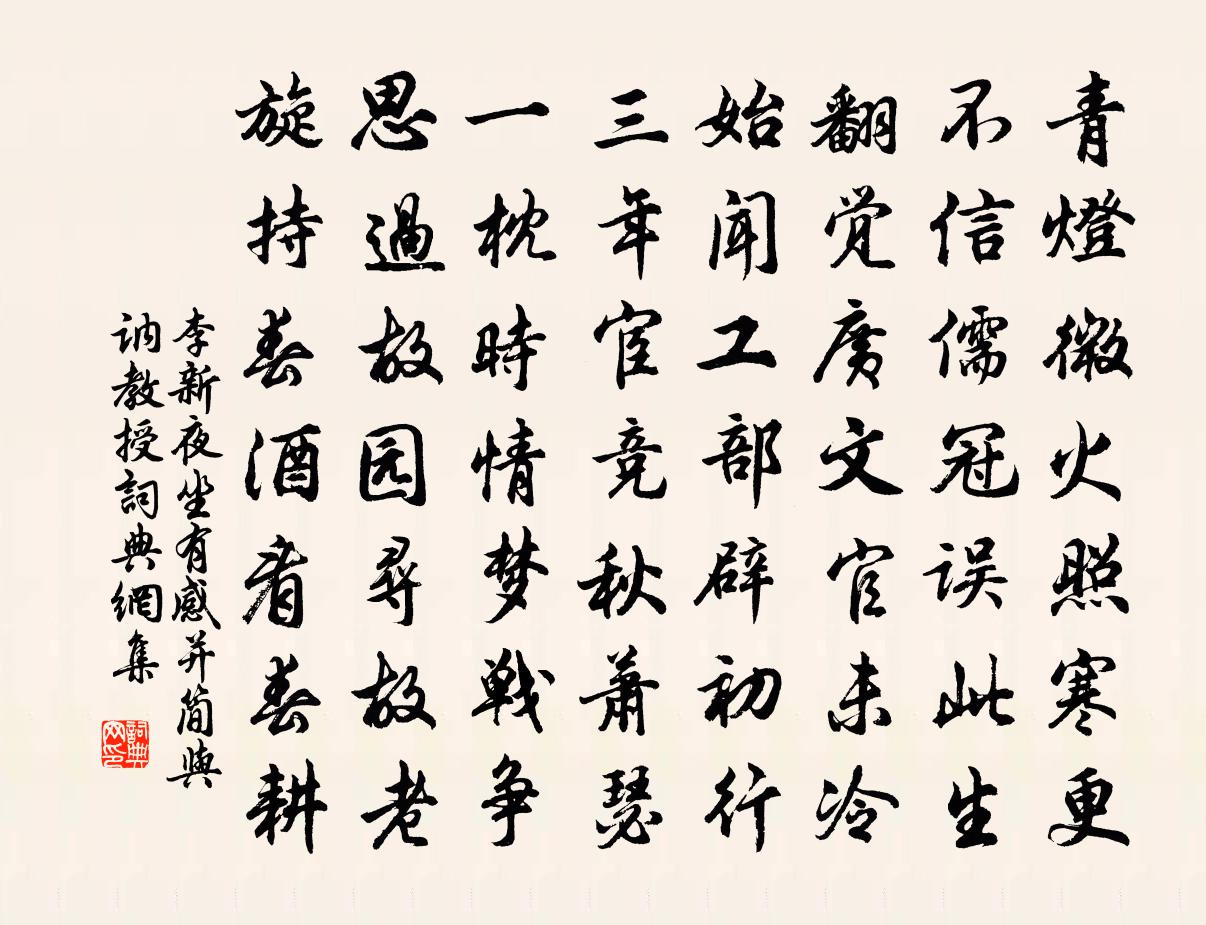 青燈微火照寒更
不信儒冠误此生
翻觉廣文官未冷
始闻工部辟初行
三年宦竞秋萧瑟
一枕時情梦戦争
思過故园尋故老
旋持春酒看春耕
李新夜坐有感并简與
讷教授詞典網集
詞典
网印